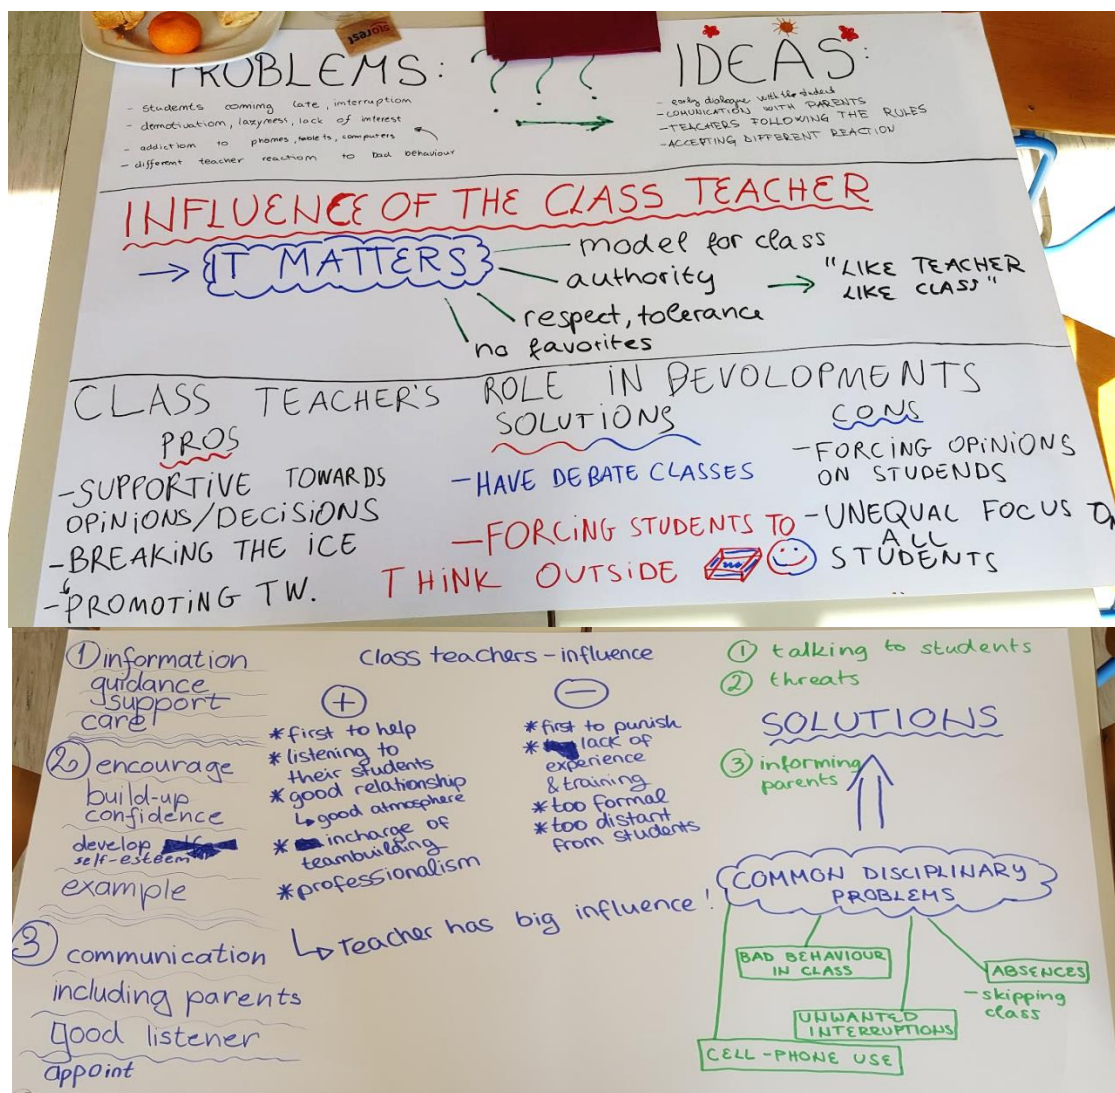 PROBLEMS: ? ? ?
- students coming late, interruption
- demotivation, lazyness, lack of interest
- addiction to phones, tablets, computers
- different teacher reaction to bad behaviour
IDEAS:
- early dialogue with the student
- COMUNICATION WITH PARENTS
- TEACHERS FOLLOWING THE RULES
- ACCEPTING DIFFERENT REACTION
INFLUENCE OF THE CLASS TEACHER
→ IT MATTERS
model for class
authority
→ "LIKE TEACHER
LIKE CLASS"
respect, tolerance
no favorites
CLASS TEACHER'S ROLE IN DEVOLOPMENTS
PROS
- SUPPORTIVE TOWARDS
OPINIONS/DECISIONS
- BREAKING THE ICE
- PROMOTING TW.
SOLUTIONS
- HAVE DEBATE CLASSES
- FORCING STUDENTS TO
THINK OUTSIDE
CONS
- FORCING OPINIONS
ON STUDENDS
- UNEQUAL FOCUS ON
ALL
STUDENTS
① information
guidance
support
care
② encourage
build-up
confidence
develop
self-esteem
example
③ communication
including parents
good listener
appoint
Class teachers - influence
+
* first to help
* listening to
their students
* good relationship
↳ good atmosphere
* incharge of
teambuilding
* professionalism
−
* first to punish
* lack of
experience
& training
* too formal
* too distant
from students
↳ Teacher has big influence!
① talking to students
② threats
SOLUTIONS
③ informing
parents
COMMON DISCIPLINARY
PROBLEMS
BAD BEHAVIOUR
IN CLASS
ABSENCES
- skipping
class
UNWANTED
INTERRUPTIONS
CELL-PHONE USE